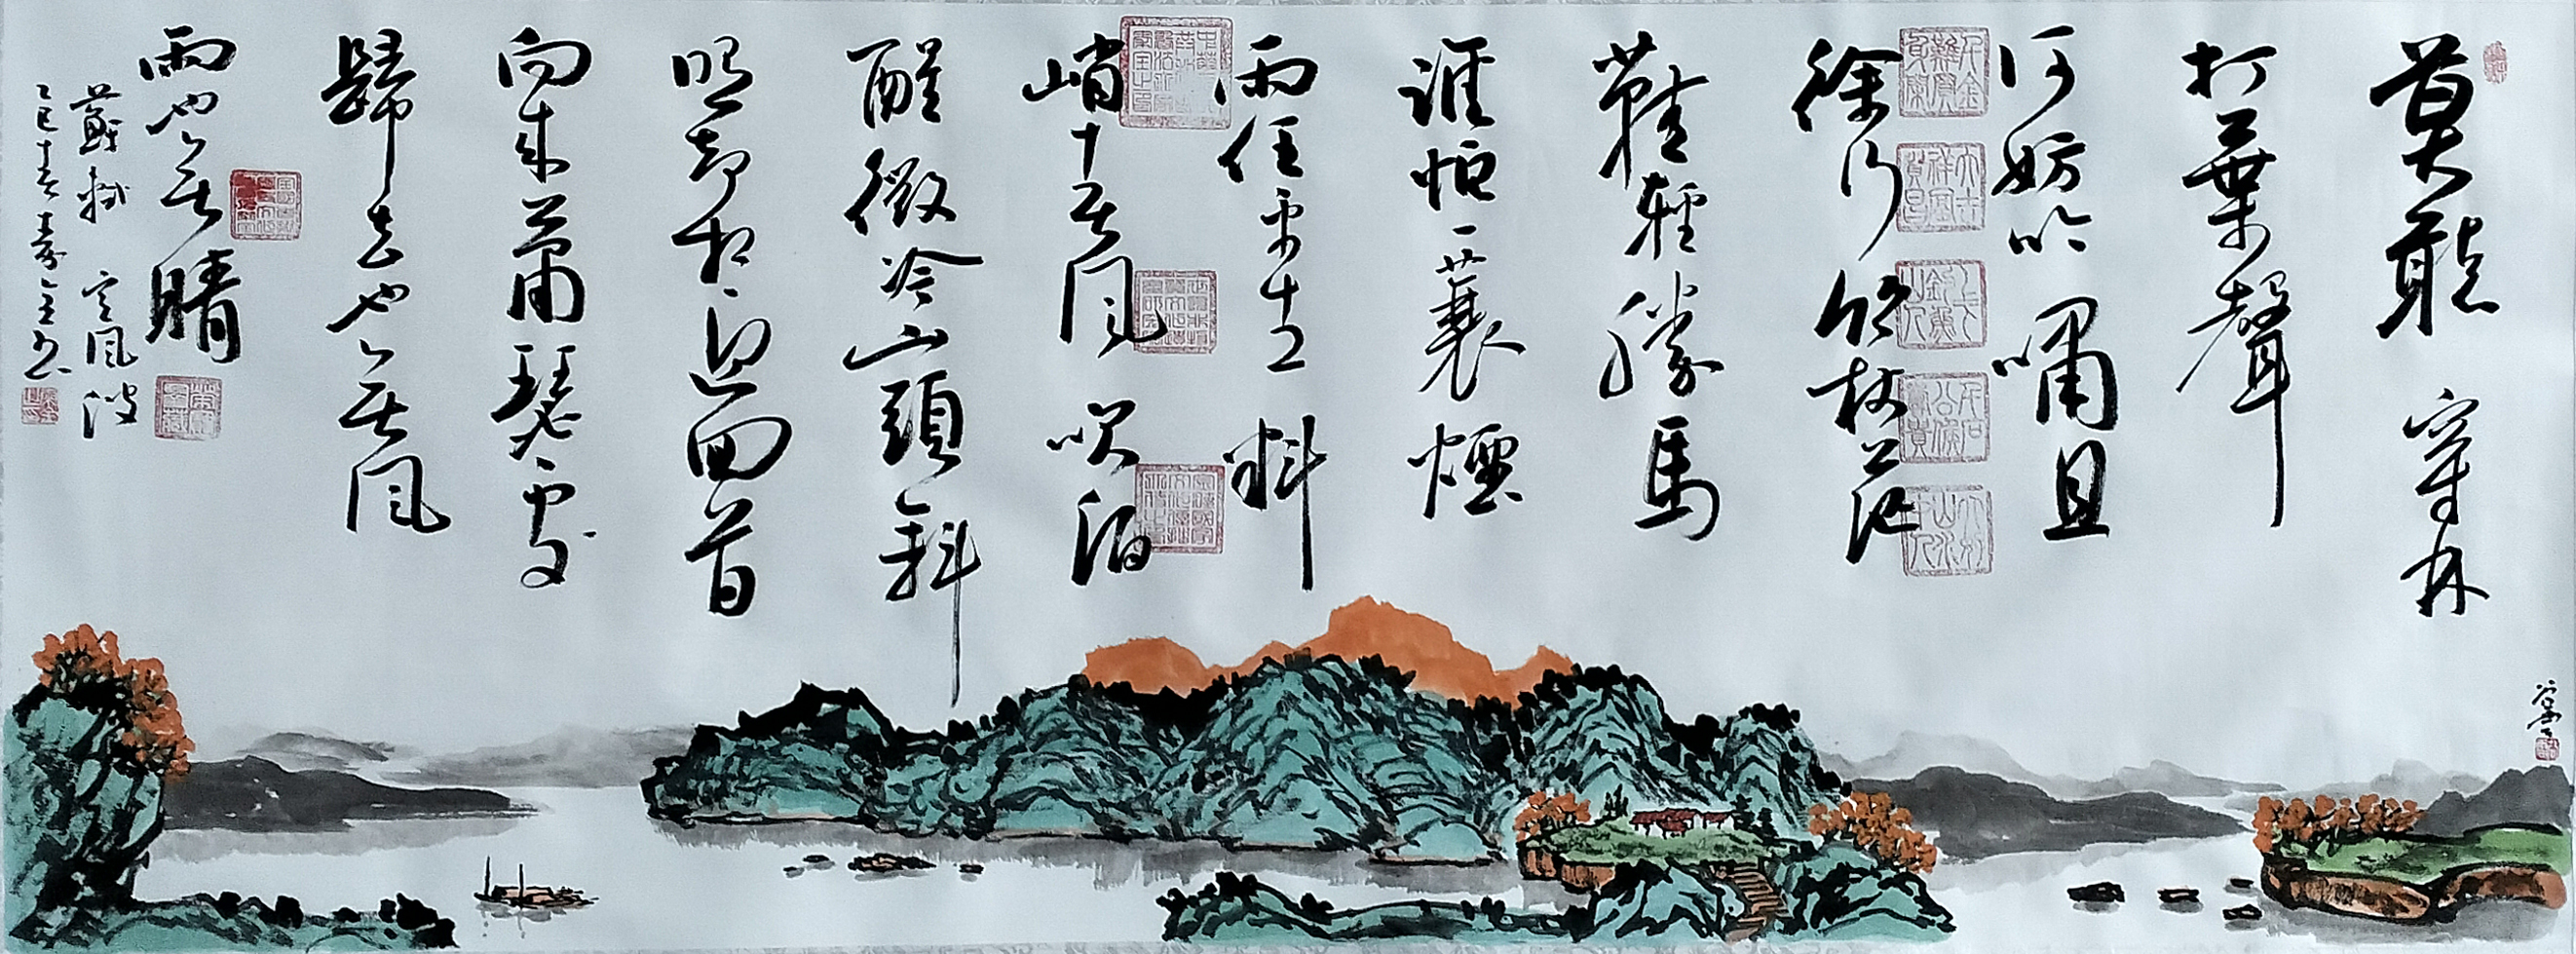 莫聽穿林
打葉聲
何妨吟嘯且
徐行竹杖芒
鞋輕勝馬
誰怕一蓑煙
雨任平生料
峭春風吹酒
醒微冷山頭斜
照卻相迎回首
向來蕭瑟處
歸去也無風
雨也無晴
蘇軾 定風波
乙巳春